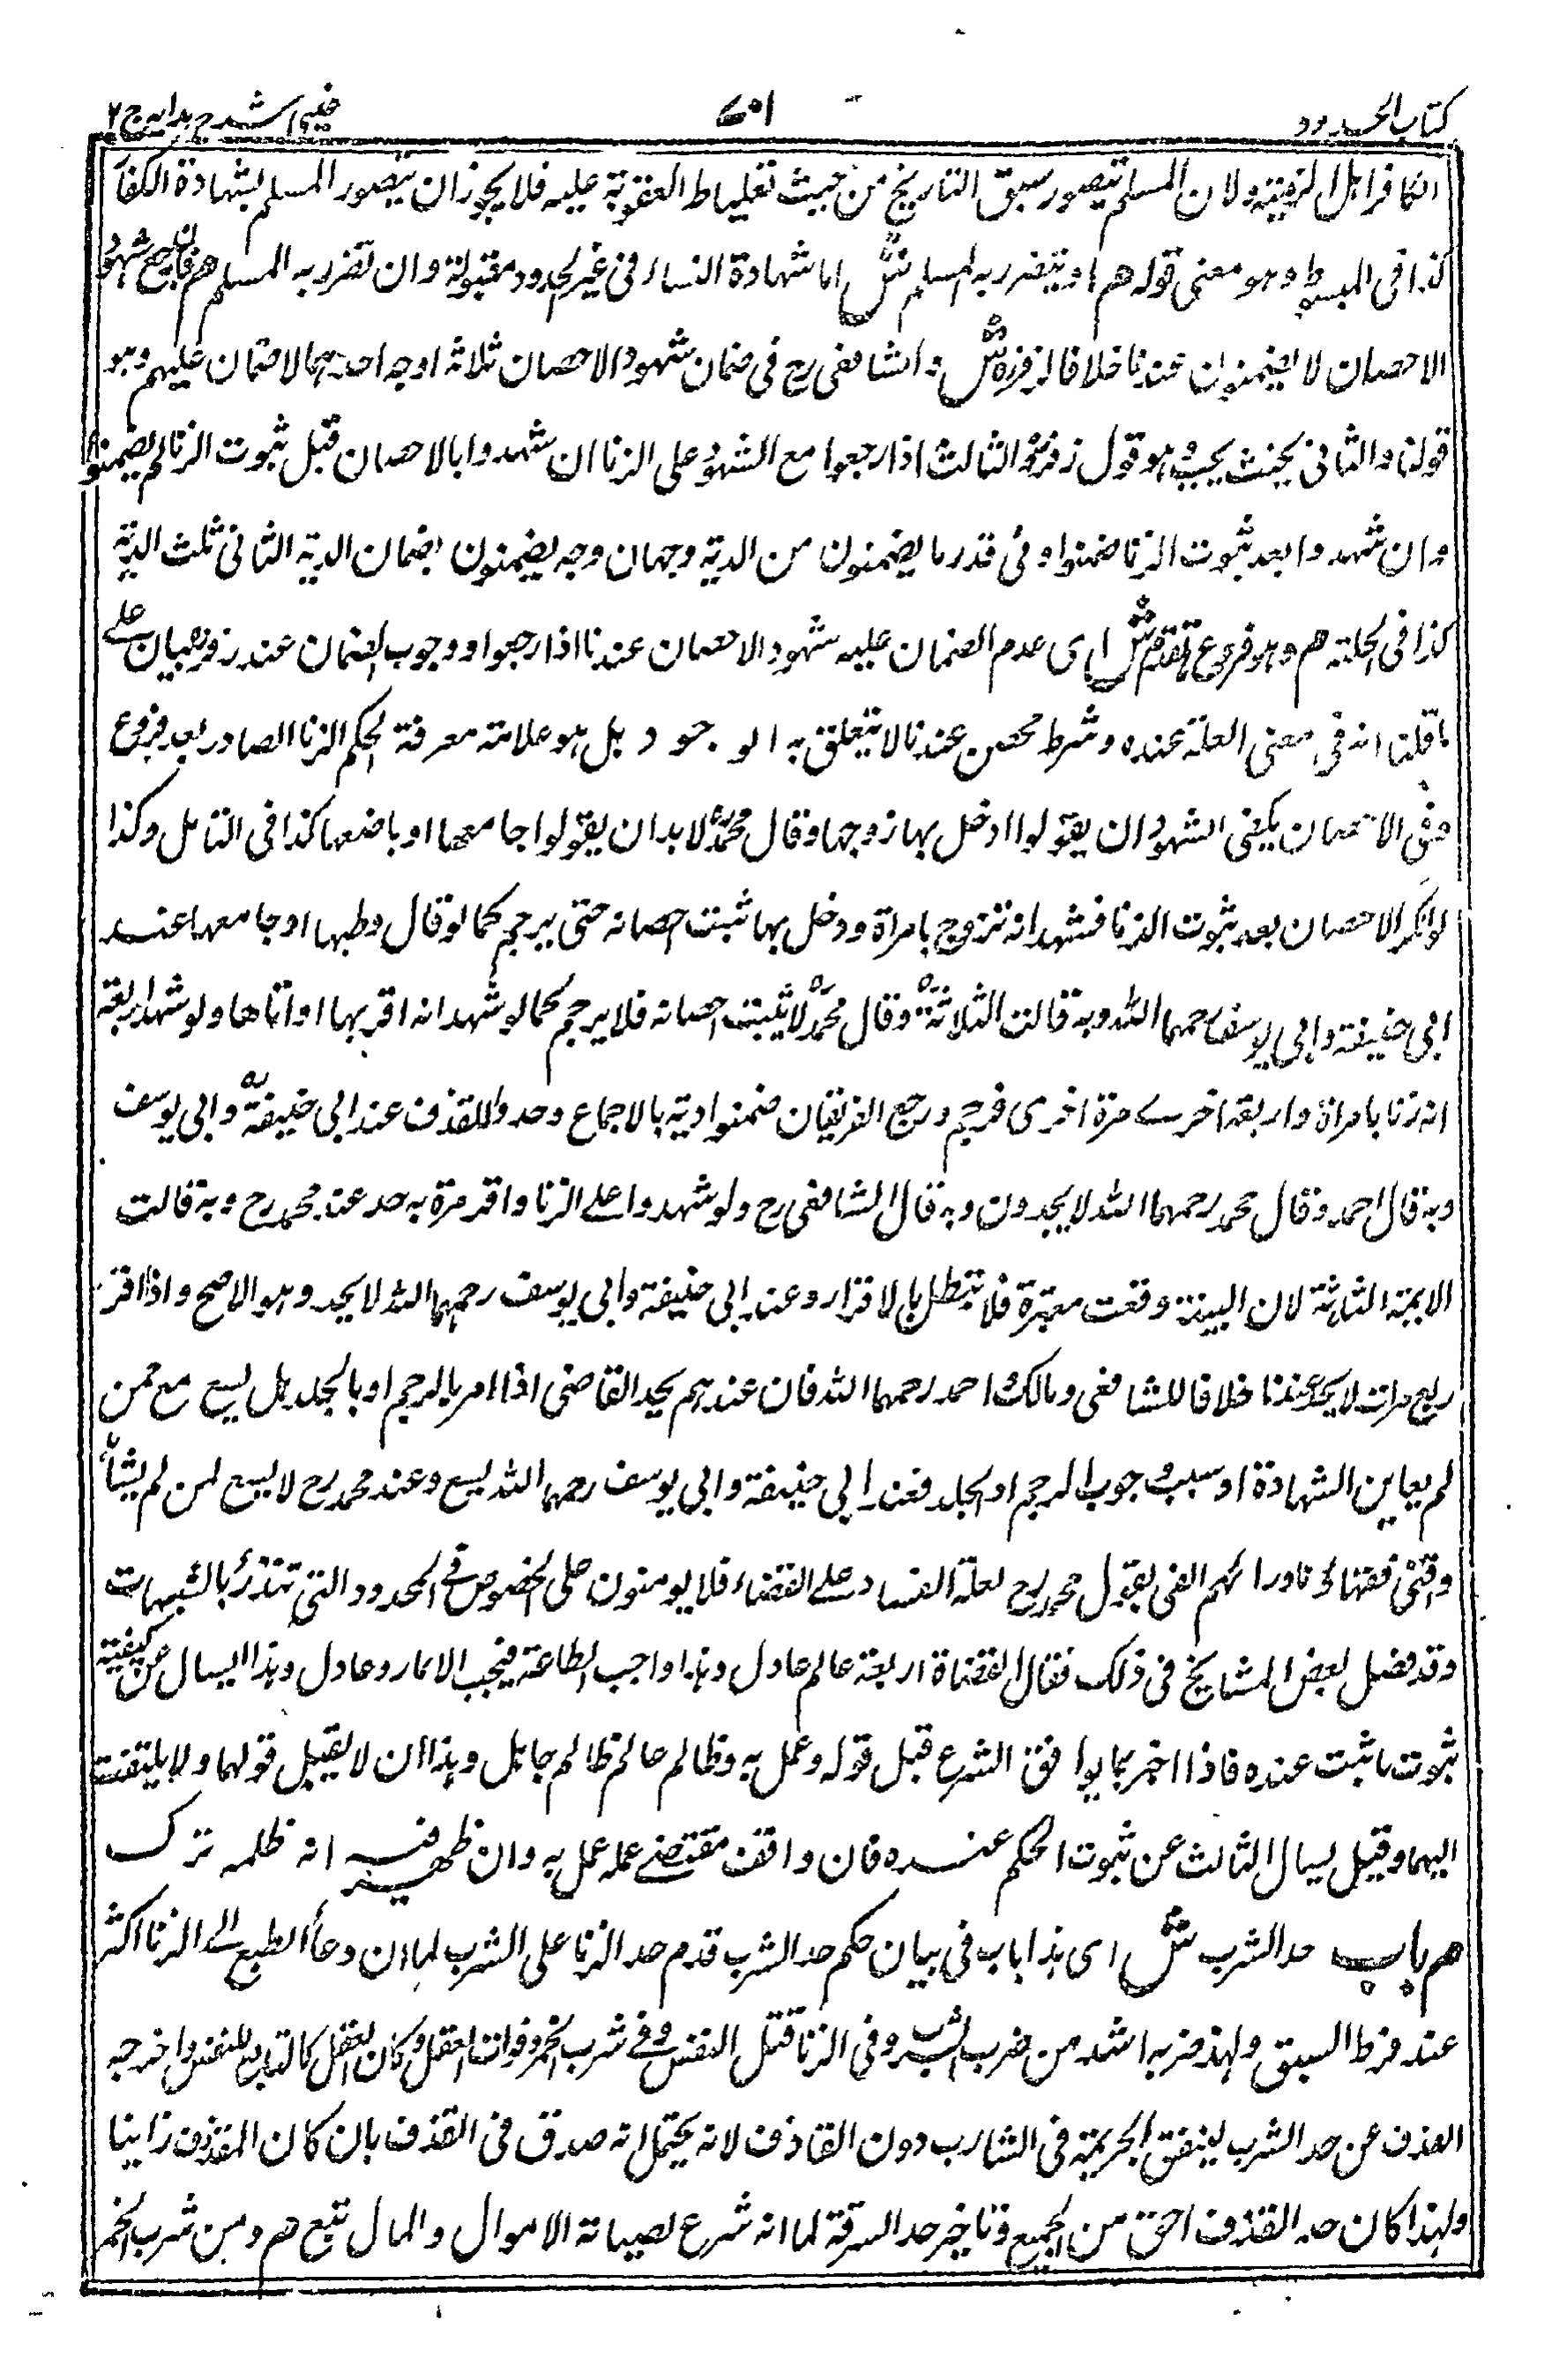 كتاب الحدود ٧٠١ عینی شرح ہدایہ ج ٢
الكافر اہل الذمۃ ولان المسلم يتصور سبق التاريخ من حيث تغليظ العقوبة عليه فلا يجوز ان يتصور المسلم بشهادة الكفار
كذا فى المبسوط وہو معنى قوله هم او يتضرر به المسلم ش اما شهادة النساء فى غير الحدود مقبولة وان تضرر به المسلم هم فان رجع شهود
الاحصان لا يضمنون عندنا خلافا لزفرؒ ش والشافعى رح فى ضمان شهود الاحصان ثلاثة اوجه احدہما لا ضمان عليهم وہو
قولنا والثانى يجب وہو قول زفرؒ والثالث اذا رجعوا مع الشهود على الزنا ان شهدوا بالاحصان قبل ثبوت الزنا لم يضمنوا
وان شهدوا بعد ثبوت الزنا ضمنوا وفى قدر ما يضمنون من الدية وجهان وجه يضمنون ضمان الدية الثانى ثلث الدية
كذا فى الحلية هم وہو فرع ما تقدم ش اى عدم الضمان عليه شهود الاحصان عندنا اذا رجعوا ووجوب الضمان عند زفر مبيان على
ما قلنا انه فى معنى العلة عنده وشرط محض عندنا لا يتعلق به الوجود بل ہو علامة معرفة لحكم الزنا الصادر بعد فروع
وفى الاحصان يكفى الشهود ان يقولوا دخل بها زوجها وقال محمدؒ لابد ان يقولوا جامعها او باضعها كذا فى الشامل وكذا
لو انكر الاحصان بعد ثبوت الزنا فشهد انه تزوج بامراة ودخل بها ثبت احصانه حتى يرجم كما لو قال وطيها او جامعها عند
ابى حنيفة وابى يوسف رحمهما الله وبه قالت الثلاثةؒ وقال محمدؒ لا يثبت احصانه فلا يرجم كما لو شهد انه اقر بها او اتاها ولو شهد اربعة
انه زنا بامراة واربعة اخرے مرة اخرى فرجم ورجع الفريقان ضمنوا دية بالاجماع وحدوا للقذف عند ابى حنيفةؒ وابى يوسف
وبه قال احمد وقال محمد رحمهما الله لا يحدون وبه قال الشافعى رح ولو شهدوا على الزنا واقر مرة به حد عند محمد رح وبه قالت
الايمة الثلاثة لان البينة وقعت معتبرة فلا تبطل بالاقرار وعند ابى حنيفة وابى يوسف رحمهما الله لا يحد وہو الاصح واذا اقر
اربع مرات لا يحد عندنا خلافا للشافعى ومالك واحمد رحمهما الله فان عندہم يحد القاضى اذا امر بالرجم او بالجلد ہل يسع مع من
لم يعاين الشهادة او سبب وجوب الرجم او الجلد فعند ابى حنيفة وابى يوسف رحمهما الله يسع وعند محمد رح لا يسع لمن لم يشأ
وفتى فقهائ ما ورا النهر الفى بقول محمد رح لعلة الفساد على القضاء فلا يومنون على الخصوص فى الحدود التى تندرئ بالشبهات
وقد فصل بعض المشايخ فى ذلك فقال القضاة اربعة عالم عادل وہذا واجب الطاعة فيجب الائتمار وعادل وہذا يسال عن كيفية
ثبوت ما ثبت عنده فاذا اخبر بما يوافق الشرع قبل قوله وعمل به وظالم عالم ظالم جاہل وہذان لا يقبل قولهما ولا يلتفت
اليهما وقيل يسال الثالث عن ثبوت الحكم عنده فان وافق مقتضے عمله عمل به وان ظهر فيه انه ظلمه ترك
هم باب حد الشرب ش اى ہذا باب فى بيان حكم حد الشرب قدم حد الزنا على الشرب لما ان دعاء الطبع الى الزنا اكثر
عند فرط السبق ولهذ ضربه اشد من ضرب الشرب وفى الزنا قتل النفس وفى شرب الخمر فوات العقل وكان العقل كالتابع للنفس واخر جه
القذف عن حد الشرب لتيقن الجريمة فى الشارب دون القاذف لانه يحتمل انه صدق فى القذف بان كان المقذوف زانيا
ولهذا كان حد القذف اخف من الجميع وتاخير حد السرقة لما انه شرع لصيانة الاموال والمال تبع هم ومن شرب الخمر